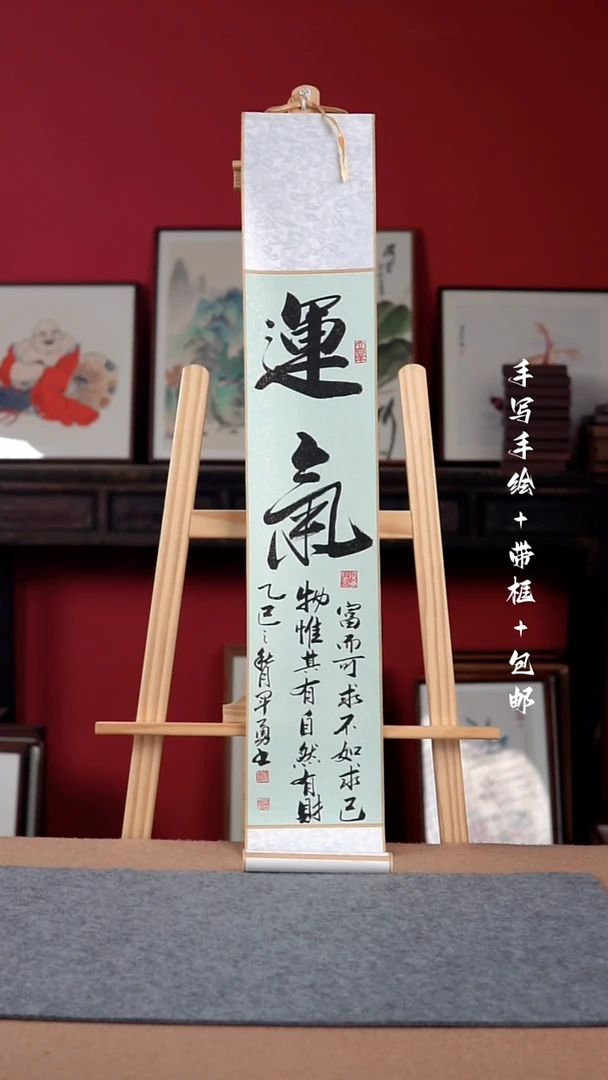 運氣
富而可求不如求己
物惟其有自然有財
乙巳之
軍勇书
手写手绘+带框+包邮